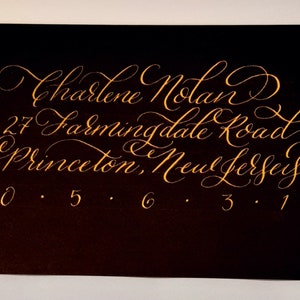 Charlene Nolan
27 Farmingdale Road
Princeton, New Jersey
0 · 5 · 6 · 3 · 1